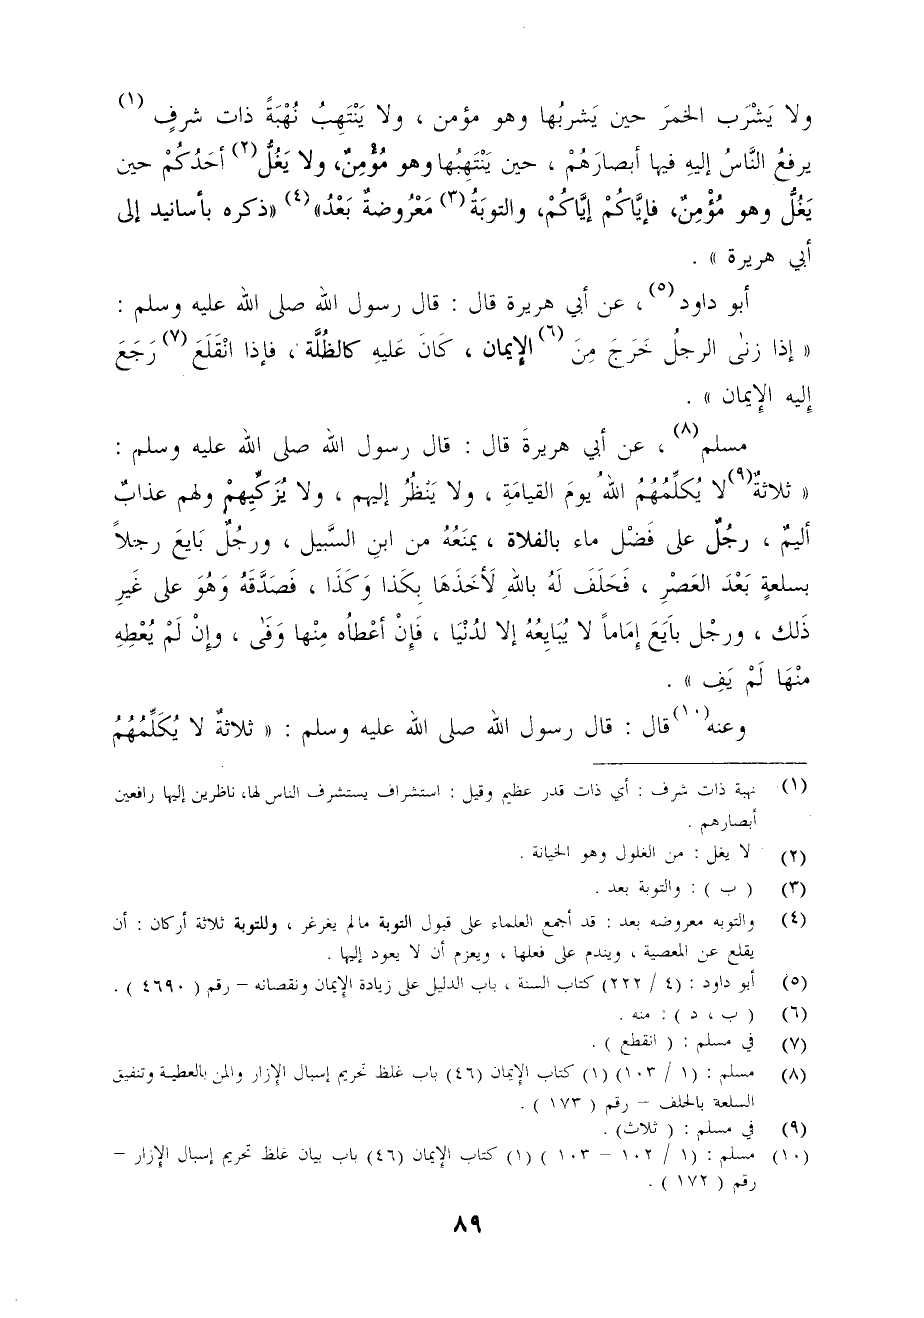 ولا يَشْرَب الخمرَ حين يَشربُها وهو مؤمن ، ولا يَنْتَهِبُ نُهْبَةً ذات شرفٍ (١)
يرفعُ النَّاسُ إليهِ فيها أبصارَهُمْ ، حين يَنْتَهِبُها وهو مُؤْمِنٌ، ولا يَغُلُّ (٢) أحَدُكُمْ حين
يَغُلُّ وهو مُؤْمِنٌ، فإيَّاكُمْ إيَّاكُمْ، والتوبَةُ (٣) مَعْرُوضةٌ بَعْدُ» (٤) «ذكره بأسانيد إلى
أبي هريرة » .
أبو داود (٥) ، عن أبي هريرة قال : قال رسول الله صلى الله عليه وسلم :
« إذا زنى الرجلُ خَرَجَ مِنَ (٦) الإيمان ، كَانَ عَليهِ كالظُلَّة ، فإذا انْقَلَعَ (٧) رَجَعَ
إليه الإيمان » .
مسلم (٨) ، عن أبي هريرةَ قال : قال رسول الله صلى الله عليه وسلم :
« ثلاثةٌ (٩) لا يُكلِّمُهُمُ اللهُ يومَ القيامَةِ ، ولا يَنْظُرُ إليهم ، ولا يُزَكِّيهِمْ ولهم عذابٌ
أليمٌ ، رجُلٌ على فَضْل ماء بالفلاة ، يمنَعُهُ من ابنِ السَّبيل ، ورجُلٌ بَايعَ رجلاً
بسلعةٍ بَعْدَ العَصْرِ ، فَحَلَفَ لَهُ باللهِ لَأخَذَهَا بِكَذا وَكَذَا ، فَصَدَّقَهُ وَهُوَ على غَيرِ
ذَلك ، ورجُل بايَعَ إمَاماً لا يُبَايعُهُ إلا لدُنْيَا ، فَإنْ أعْطاه مِنْها وَفَى ، وإنْ لَمْ يُعْطِهِ
منْهَا لَمْ يَفِ » .
وعنه (١٠) قال : قال رسول الله صلى الله عليه وسلم : « ثلاثةٌ لا يُكلِّمُهُمُ
(١) نهبة ذات شرف : أي ذات قدر عظيم وقيل : استشراف يستشرف الناس لها، ناظرين إليها رافعين
أبصارهم .
(٢) لا يغل : من الغلول وهو الخيانة .
(٣) ( ب ) : والتوبة بعد .
(٤) والتوبه معروضه بعد : قد أجمع العلماء على قبول التوبة مالم يغرغر ، وللتوبة ثلاثة أركان : أن
يقلع عن المعصية ، ويندم على فعلها ، ويعزم أن لا يعود إليها .
(٥) أبو داود : (٤ / ٢٢٢) كتاب السنة ، باب الدليل على زيادة الإيمان ونقصانه – رقم ( ٤٦٩٠ ) .
(٦) ( ب ، د ) : منه .
(٧) في مسلم : ( انقطع ) .
(٨) مسلم : (١ / ١٠٣) (١) كتاب الإيمان (٤٦) باب غلظ تحريم إسبال الإزار والمن بالعطية وتنفيق
السلعة بالحلف – رقم ( ١٧٣ ) .
(٩) في مسلم : ( ثلاث) .
(١٠) مسلم : (١ / ١٠٢ – ١٠٣ ) (١) كتاب الإيمان (٤٦) باب بيان غلظ تحريم إسبال الإزار –
رقم ( ١٧٢ ) .
٨٩